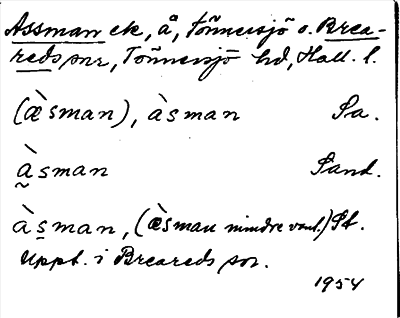 Assman ek, å, Tönnersjö o. Brea-
reds snr, Tönnersjö hd, Hall. l.
(æ̀sman), àsman Sa.
à̰sman Sand.
às̱man, (æ̀sman mindre vanl.) St.
Uppt. i Breareds sn.
1954